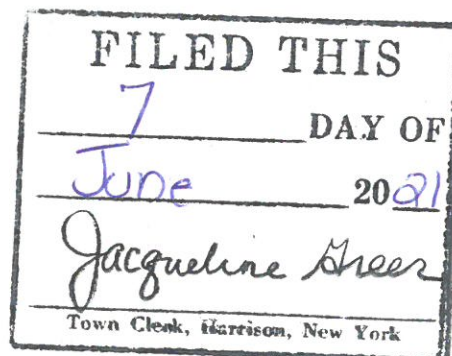 FILED THIS
7 DAY OF
June 2021
Jacqueline Greer
Town Clerk, Harrison, New York